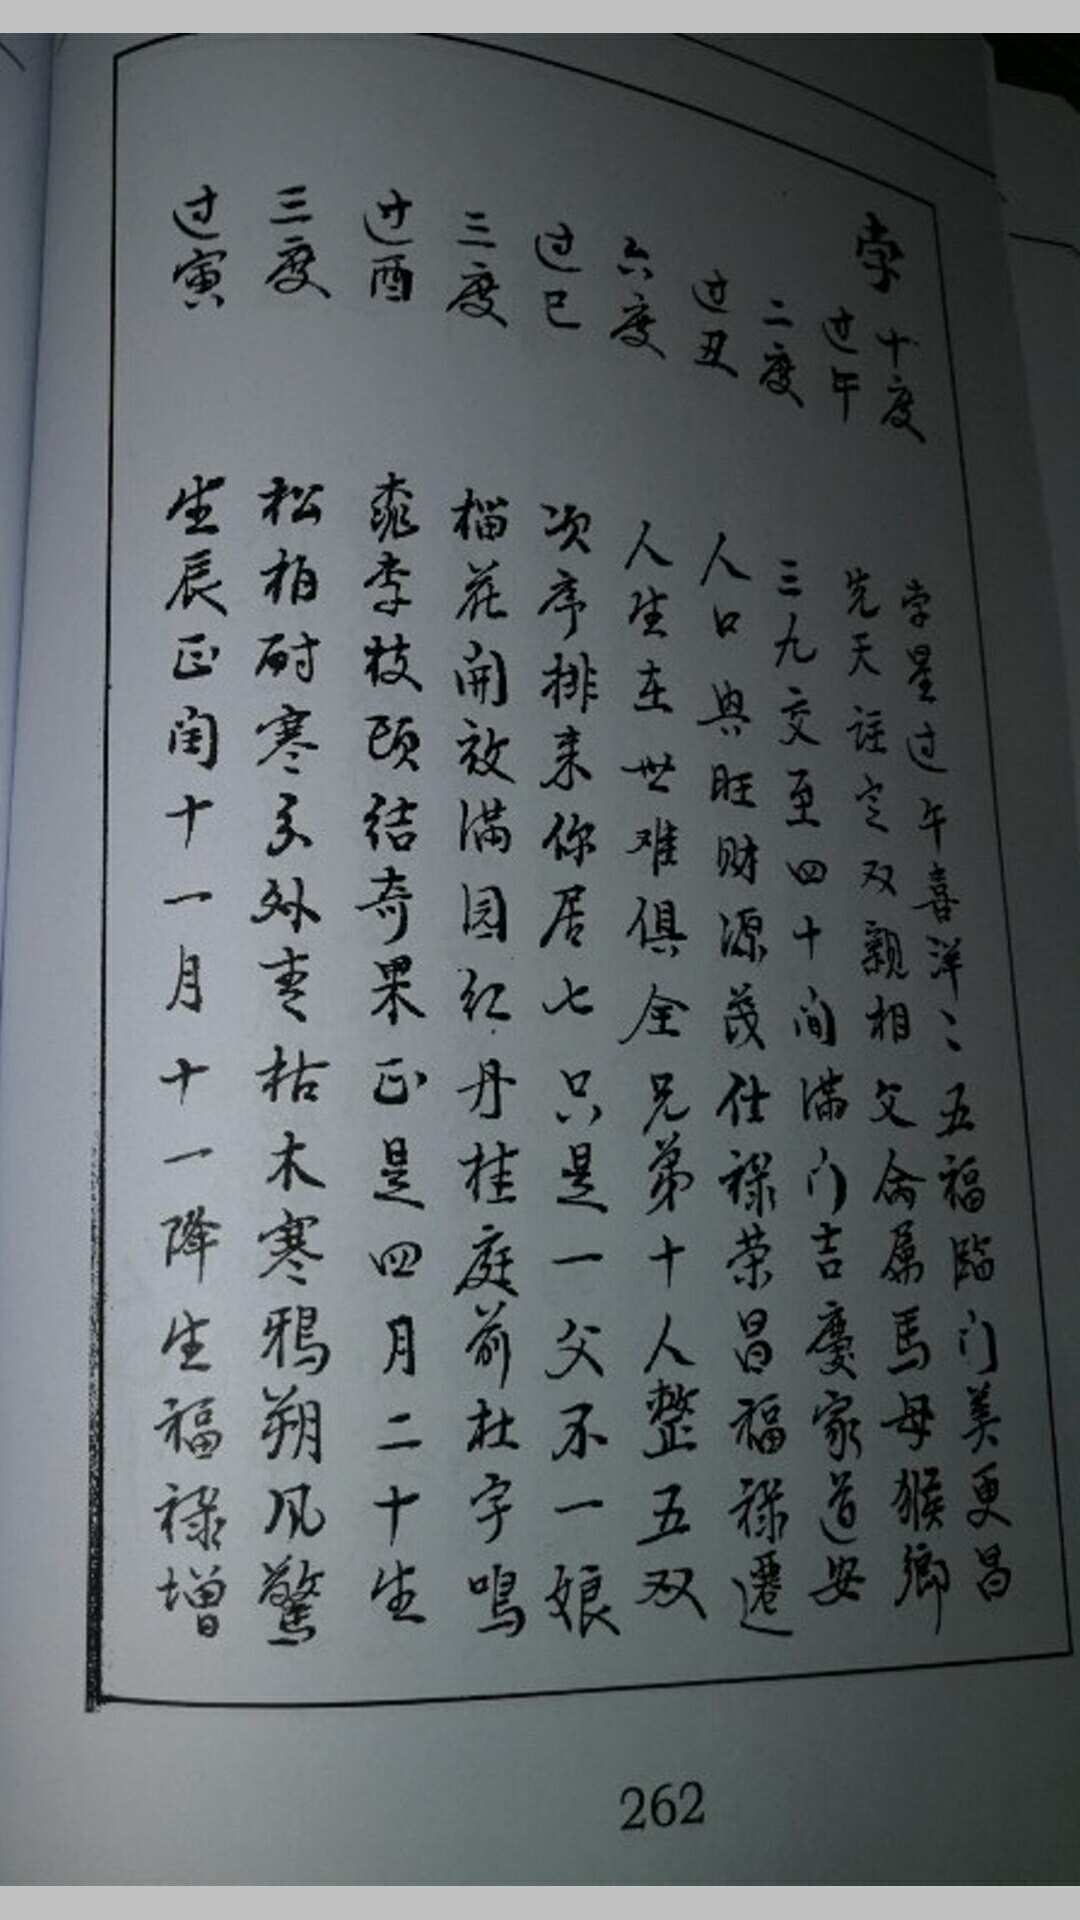 孛 十度
过午
二度
过丑
六度
过巳
三度
过酉
三度
过寅
孛星过午喜洋〻五福临门美更昌
先天註定双親相父命属馬母猴鄉
三九交至四十间满门吉慶家道安
人口興旺财源茂仕禄荣昌福禄遷
人生在世难俱全兄弟十人整五双
次序排来你居七只是一父不一娘
榴花開放满园红丹桂庭前杜宇鳴
桃李枝頭结奇果正是四月二十生
松柏耐寒分外青枯木寒鴉朔风驚
生辰正闰十一月十一降生福禄增
262